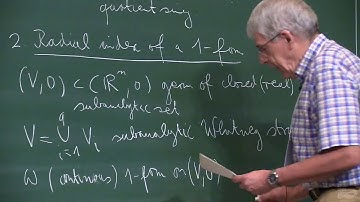 quotient sing
2. Radial index of a 1-form
(V,0) ⊂ (ℝⁿ,0) germ of closed (real)
subanalytic set
V = ⋃ᵢ₌₁^q Vᵢ subanalytic Whitney
ω (continuous) 1-form on (V,0)